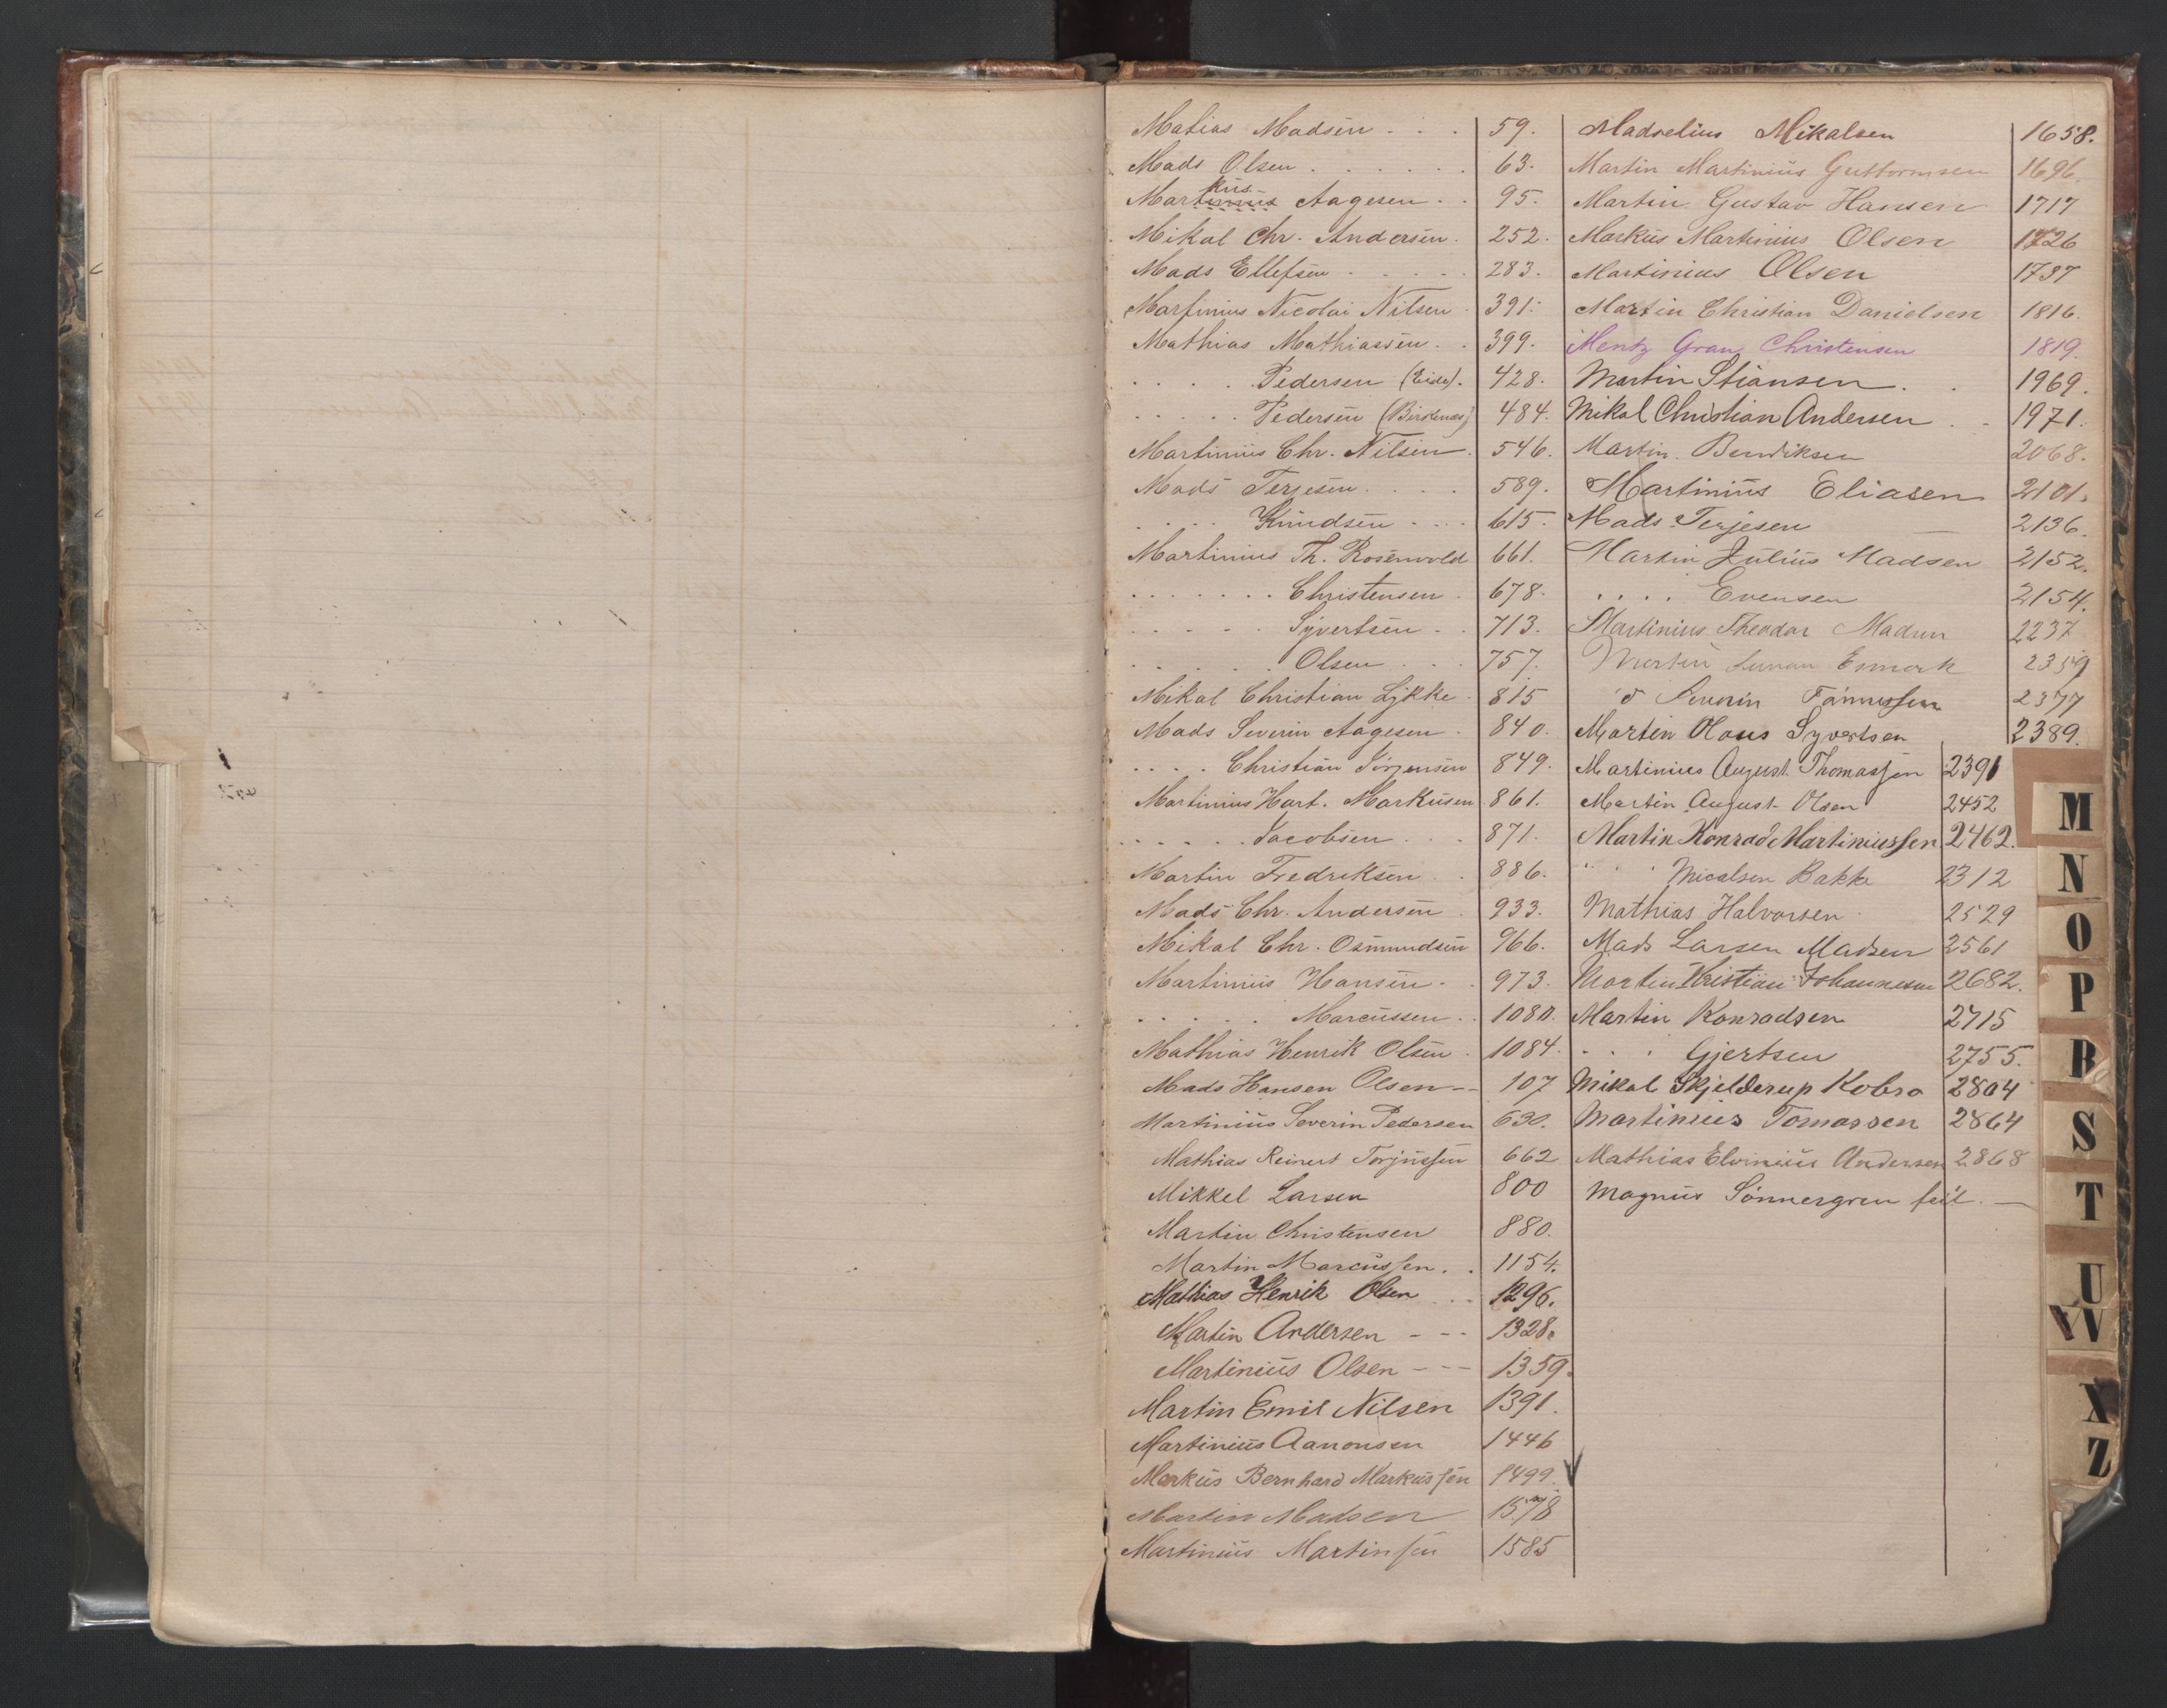 Matias Madsen . . . 59.
Mads Olsen . . . . . . 63.
kus
Martinius Aagesen . . 95.
Mikal Chr. Andersen . 252.
Mads Ellefsen . . . . . 283.
Martinius Nicolai Nilsen . 391.
Mathias Mathiassen . . 399.
. . . . . Pedersen (Eide) . 428.
. . . . . Pedersen (Birkenæs) 484.
Martinius Chr. Nilsen . 546.
Mads Terjesen . . . . 589.
. . . . Knudsen . . . 615.
Martinius Th. Rosenvold 661.
. . . . . . . Christensen . 678.
. . . . . Syvertsen . . 713.
. . . . . . Olsen . . . 757.
Mikal Christian Lykke . 815
Mads Severin Aagesen . 840.
. . . . Christian Jörgensen 849.
Martinius Hart. Markusen 861.
. . . . . . Jacobsen . . . 871.
Martin Fredriksen . . 886.
Mads Chr. Andersen . 933.
Mikal Chr. Osmundsen 966.
Martinius Hansen . . 973.
. . . . . Marcussen . . 1080.
Mathias Henrik Olsen . 1084.
Mads Hansen Olsen -- 107
Martinius Severin Pedersen 630.
Mathias Reinert Torjussen 662
Mikkel Larsen 800
Martin Christensen 880.
Martin Marcussen . . 1154.
Mathias Henrik Olsen . . 1296.
Martin Andersen - - - 1328.
Martinius Olsen - - - 1359.
Martin Emil Nilsen 1391.
Martinius Aanonsen 1446
Markus Bernhard Markussen 1499.
Martin Madsen 1578
Martinius Martinsen 1585
Madselius Mikalsen 1658.
Martin Martinius Guttormsen 1696.
Martin Gustav Hansen 1717
Markus Martinius Olsen 1726
Martinius Olsen 1737
Martin Christian Danielsen 1816.
Mentz Gran Christensen 1819.
Martin Stiansen . . 1969.
Mikal Christian Andersen . . 1971.
Martin Bendiksen 2068.
Martinius Eliasen 2101.
Mads Terjesen 2136.
Martin Julius Madsen 2152.
. . . . Evensen 2154.
Martinius Theodor Madsen 2237
Martin Esmark 2359
Severin 2377
Martin Olaus Syvertsen 2389.
Martinius August Thomassen 2391
Martin August Olsen 2452
Martin Konrad Martiniussen 2462.
" " Micalsen Bakke 2312
Mathias Halvorsen 2529
Mads Larsen Madsen 2561
Martin Kristian Johannesen 2682.
Martin Konradsen 2715
. . . Gjertsen 2755.
Mikal Skjelderup Kobro 2804
Martinius Tomassen 2864
Mathias Elvinius Andersen 2868
Magnus Sönnergren feil. —
M
N
O
P
R
S
T
U
W
X
Z